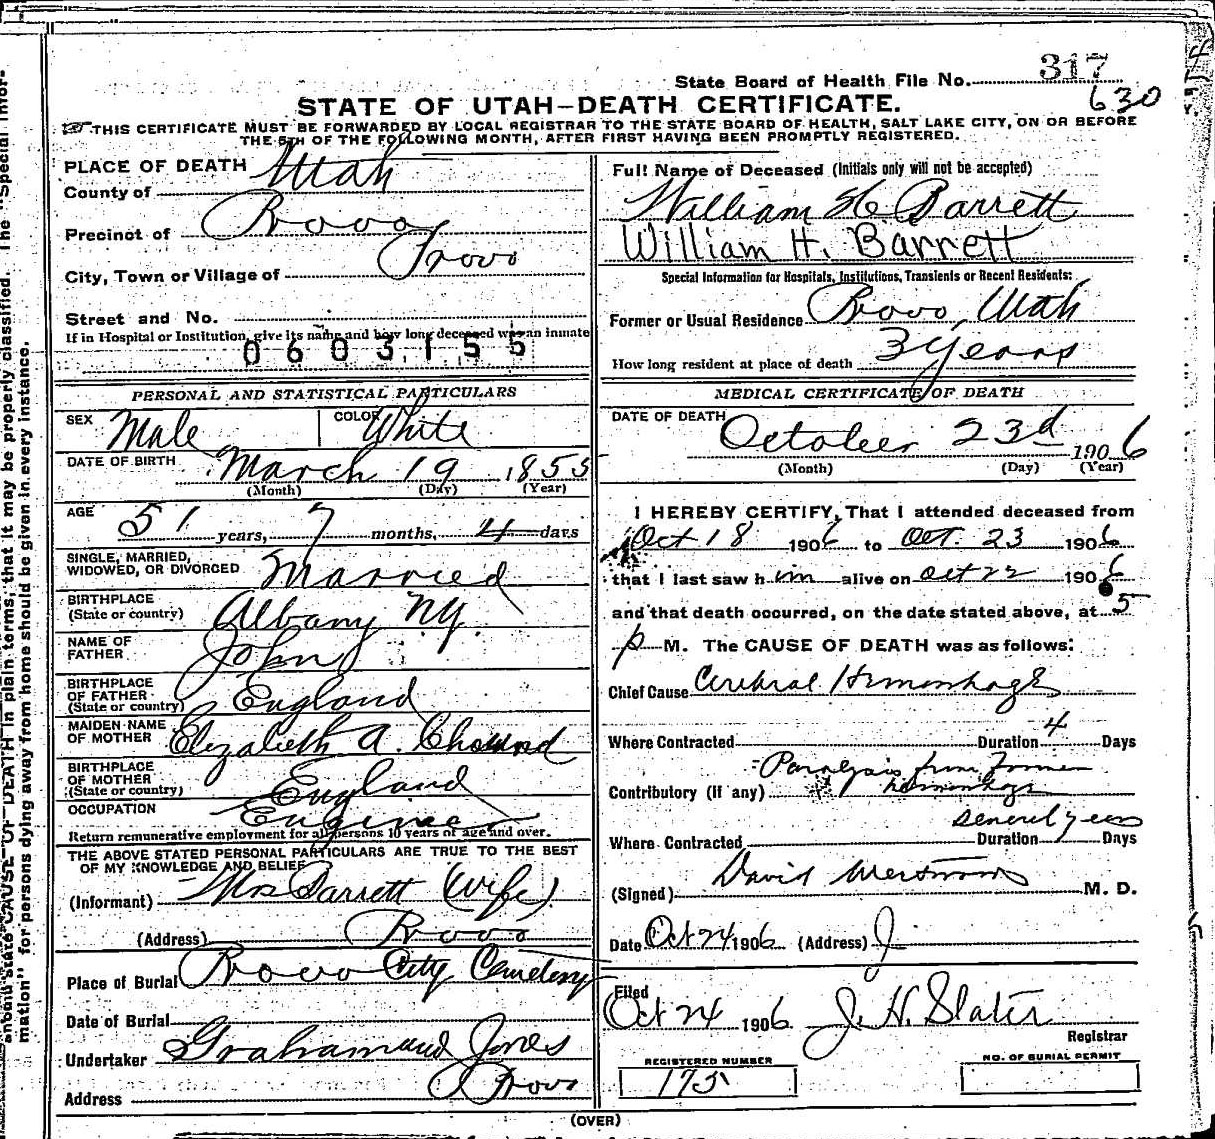 State Board of Health File No. 317
630
STATE OF UTAH—DEATH CERTIFICATE.
THIS CERTIFICATE MUST BE FORWARDED BY LOCAL REGISTRAR TO THE STATE BOARD OF HEALTH, SALT LAKE CITY, ON OR BEFORE
THE 5TH OF THE FOLLOWING MONTH, AFTER FIRST HAVING BEEN PROMPTLY REGISTERED.
PLACE OF DEATH
County of Utah
Precinct of Provo
City, Town or Village of Provo
Street and No.
If in Hospital or Institution, give its name and how long deceased was an inmate
0603155
PERSONAL AND STATISTICAL PARTICULARS
SEX Male COLOR White
DATE OF BIRTH March 19 1855
(Month) (Day) (Year)
AGE 51 years, 7 months, 4 days
SINGLE, MARRIED,
WIDOWED, OR DIVORCED Married
BIRTHPLACE
(State or country) Albany N.Y.
NAME OF
FATHER John
BIRTHPLACE
OF FATHER
(State or country) England
MAIDEN NAME
OF MOTHER Elizabeth A.
BIRTHPLACE
OF MOTHER
(State or country) England
OCCUPATION Engineer
Return remunerative employment for all persons 10 years of age and over.
THE ABOVE STATED PERSONAL PARTICULARS ARE TRUE TO THE BEST
OF MY KNOWLEDGE AND BELIEF
(Informant) Mrs Barrett (Wife)
(Address) Provo
Place of Burial Provo City Cemetery
Date of Burial
Undertaker Graham and Jones
Address Provo
Full Name of Deceased (Initials only will not be accepted)
William H Barrett
William H. Barrett
Special Information for Hospitals, Institutions, Transients or Recent Residents:
Former or Usual Residence Provo, Utah
How long resident at place of death 3 years
MEDICAL CERTIFICATE OF DEATH
DATE OF DEATH October 23d 1906
(Month) (Day) (Year)
I HEREBY CERTIFY, That I attended deceased from
Oct 18 1906 to Oct. 23 1906
that I last saw him alive on Oct 22 1906
and that death occurred, on the date stated above, at 5
p M. The CAUSE OF DEATH was as follows:
Chief Cause Cerebral Hemorrhage
Where Contracted Duration 4 Days
Contributory (if any) Paralysis from former
hemorrhage
Several years
Where Contracted Duration Days
(Signed) David M. D.
Date Oct 24 1906 (Address)
Filed
Oct 24 1906 J. H. Slater
Registrar
REGISTERED NUMBER
175
NO. OF BURIAL PERMIT
(OVER)
state CAUSE OF DEATH in plain terms, that it may be properly classified. The "Special Infor-
mation" for persons dying away from home should be given in every instance.